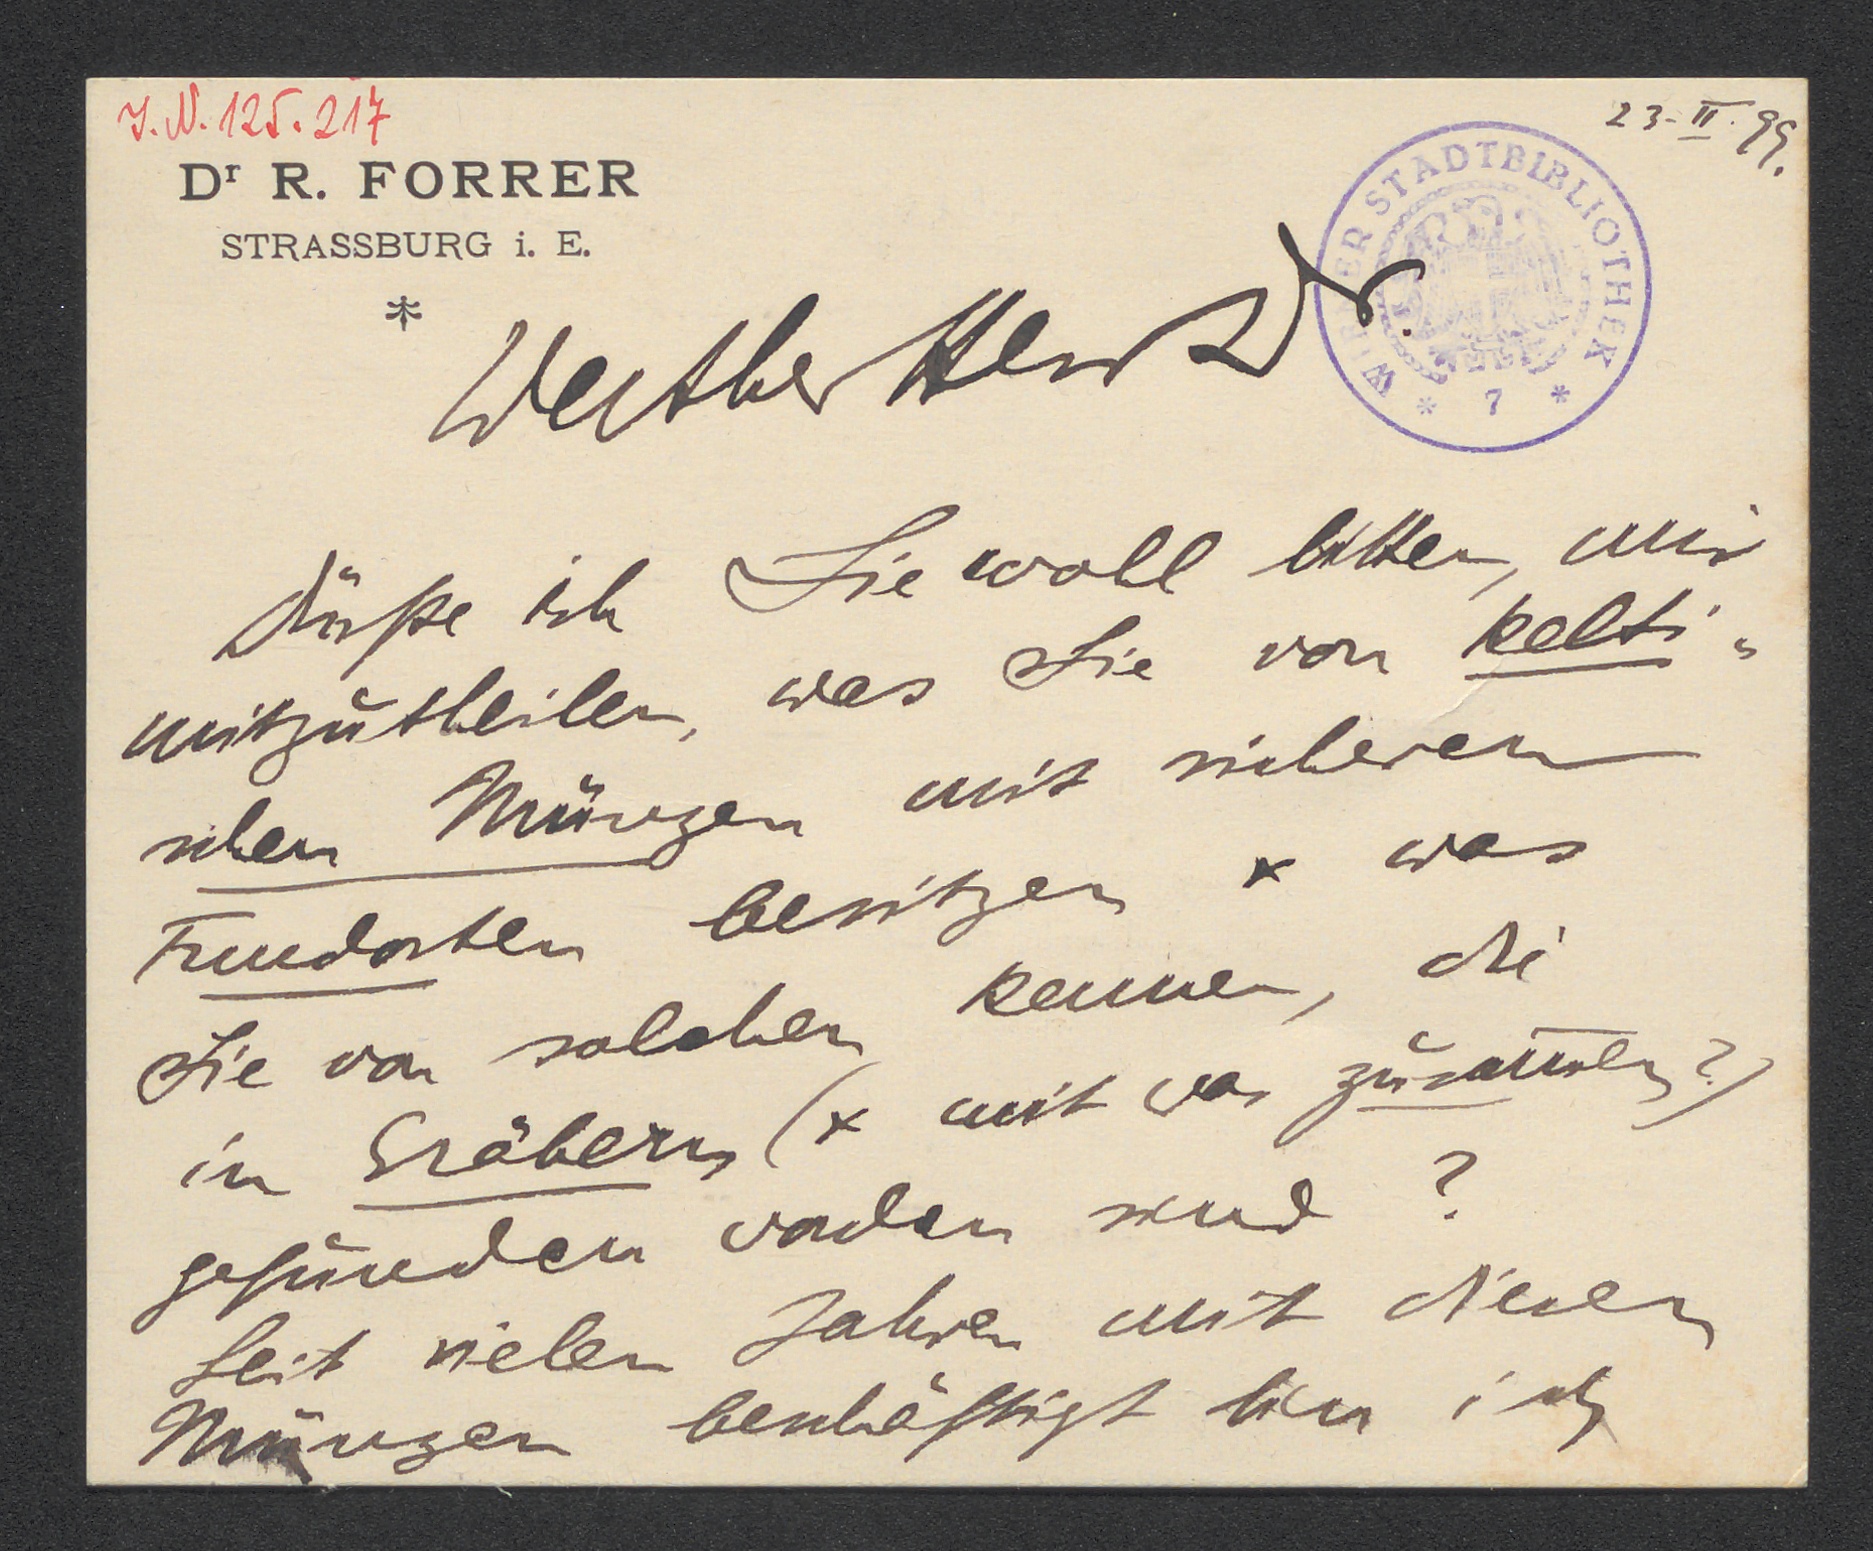 J.N. 125.217
23-II.99.
Dr R. FORRER
STRASSBURG i. E.
WIENER STADTBIBLIOTHEK
* 7 *
Werther Herr Dr.
Dürfte ich Sie wohl bitten, mir
mitzutheilen, was Sie von kelti-
schen Münzen mit sicheren
Fundorten besitzen & was
Sie von solchen kennen, die
in Gräbern (& mit was zusammen?)
gefunden worden sind?
Seit vielen Jahren mit diesen
Münzen beschäftigt bin ich